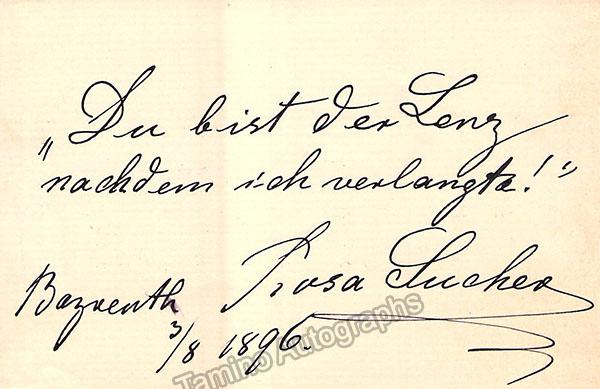 „Du bist der Lenz
nachdem ich verlangte!"
Rosa Sucher
Bayreuth
3/8 1896.
Tamino Autographs